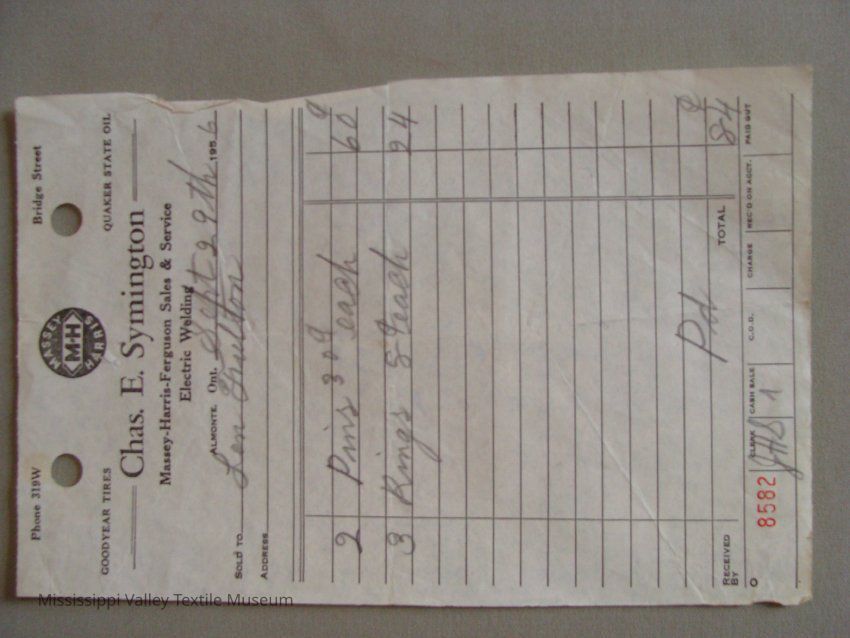 Phone 319W Bridge Street
MASSEY M-H HARRIS
GOODYEAR TIRES QUAKER STATE OIL
Chas. E. Symington
Massey-Harris-Ferguson Sales & Service
Electric Welding
ALMONTE, Ont. Sept 29th 1956
SOLD TO Len
ADDRESS
2 Pins 30¢ each 60¢
3 Rings 8¢ each 24
Pd TOTAL 84¢
RECEIVED BY
CLERK CASH SALE C.O.D. CHARGE REC'D ON ACCT. PAID OUT
8582 JHS 1
Mississippi Valley Textile Museum